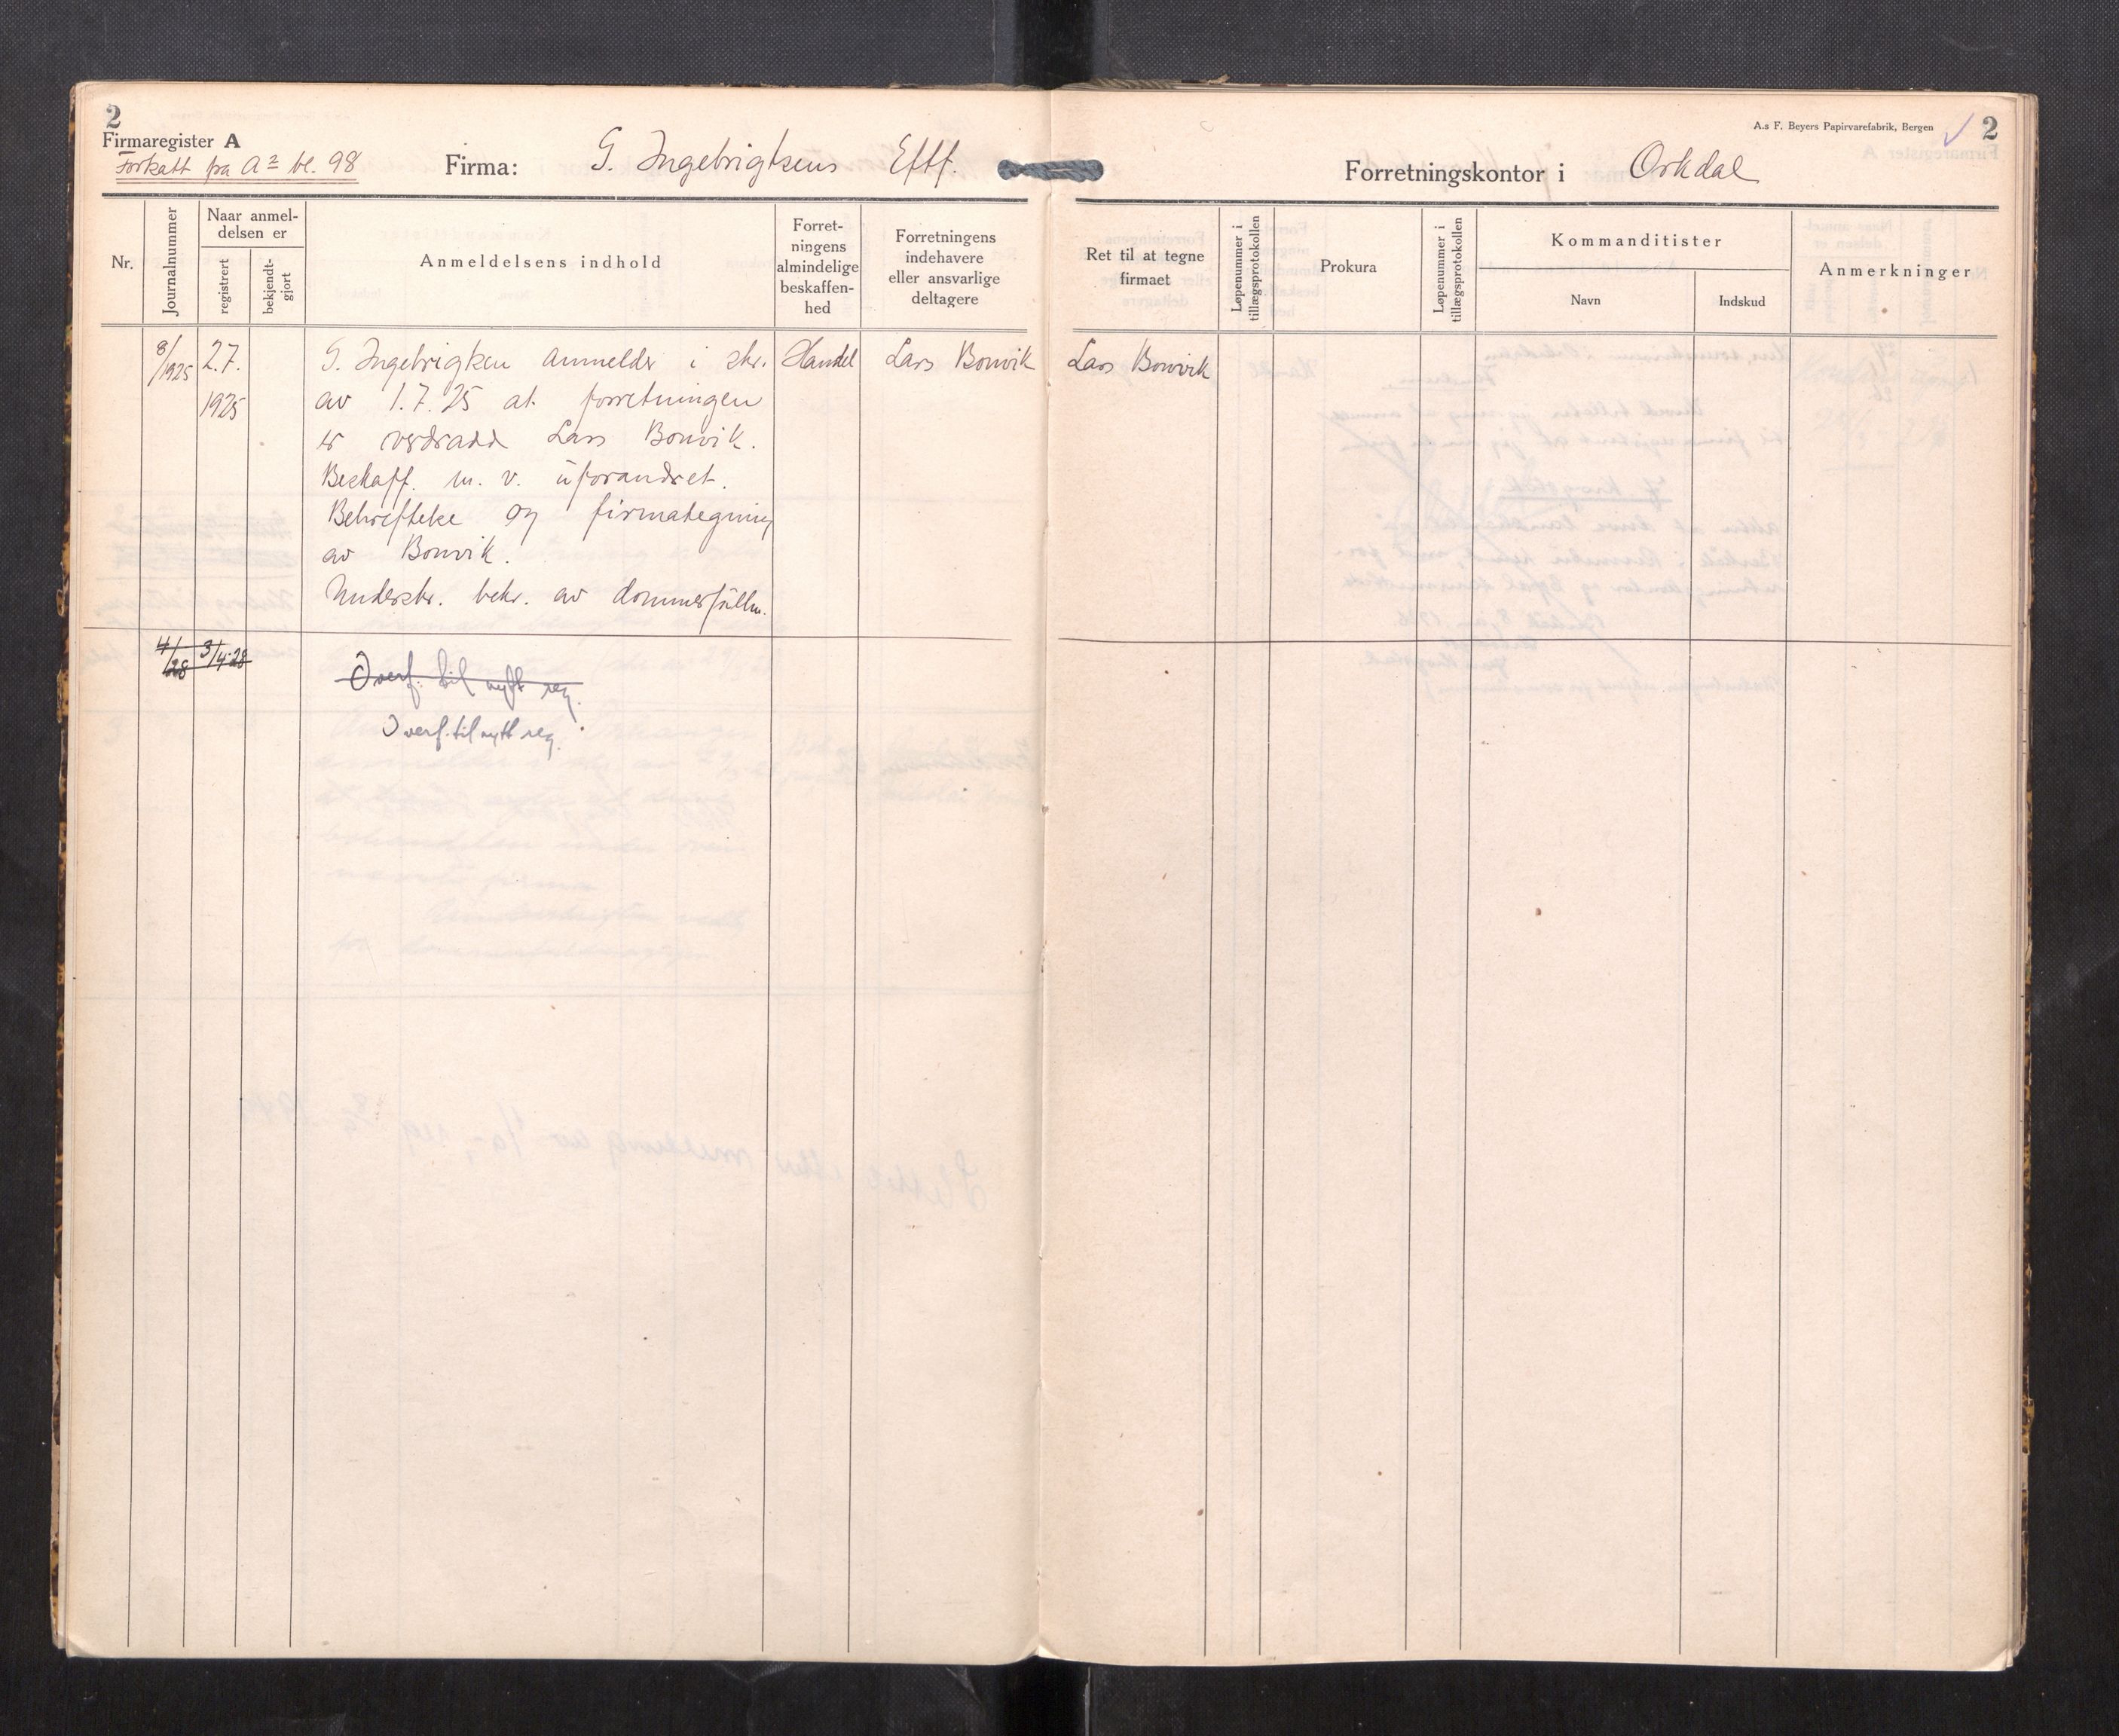 2
Firmaregister A
Fortsatt fra A2 bl. 98
Firma: G. Ingebrigtsens Eftf.
A.s F. Beyers Papirvarefabrik, Bergen
2
Forretningskontor i Orkdal
Nr.
Journalnummer
Naar anmel-
delsen er
registrert
bekjendt-
gjort
Anmeldelsens indhold
Forret-
ningens
almindelige
beskaffen-
hed
Forretningens
indehavere
eller ansvarlige
deltagere
Ret til at tegne
firmaet
Løpenummer i
tillægsprotokollen
Prokura
Løpenummer i
tillægsprotokollen
Kommanditister
Navn
Indskud
Anmerkninger
8/1925
2.7.
1925
G. Ingebrigtsen anmelder i skr.
av 1.7.25 at forretningen
er overdradd Lars Bonvik.
Beskaff. m. v. uforandret.
Bekreftelse og firmategning
av Bonvik.
Underskr. bekr. av dommerfullm.
Handel
Lars Bonvik
Lars Bonvik
4/28
3/4-28
Overf. til nytt reg.
Overf. til nytt reg.